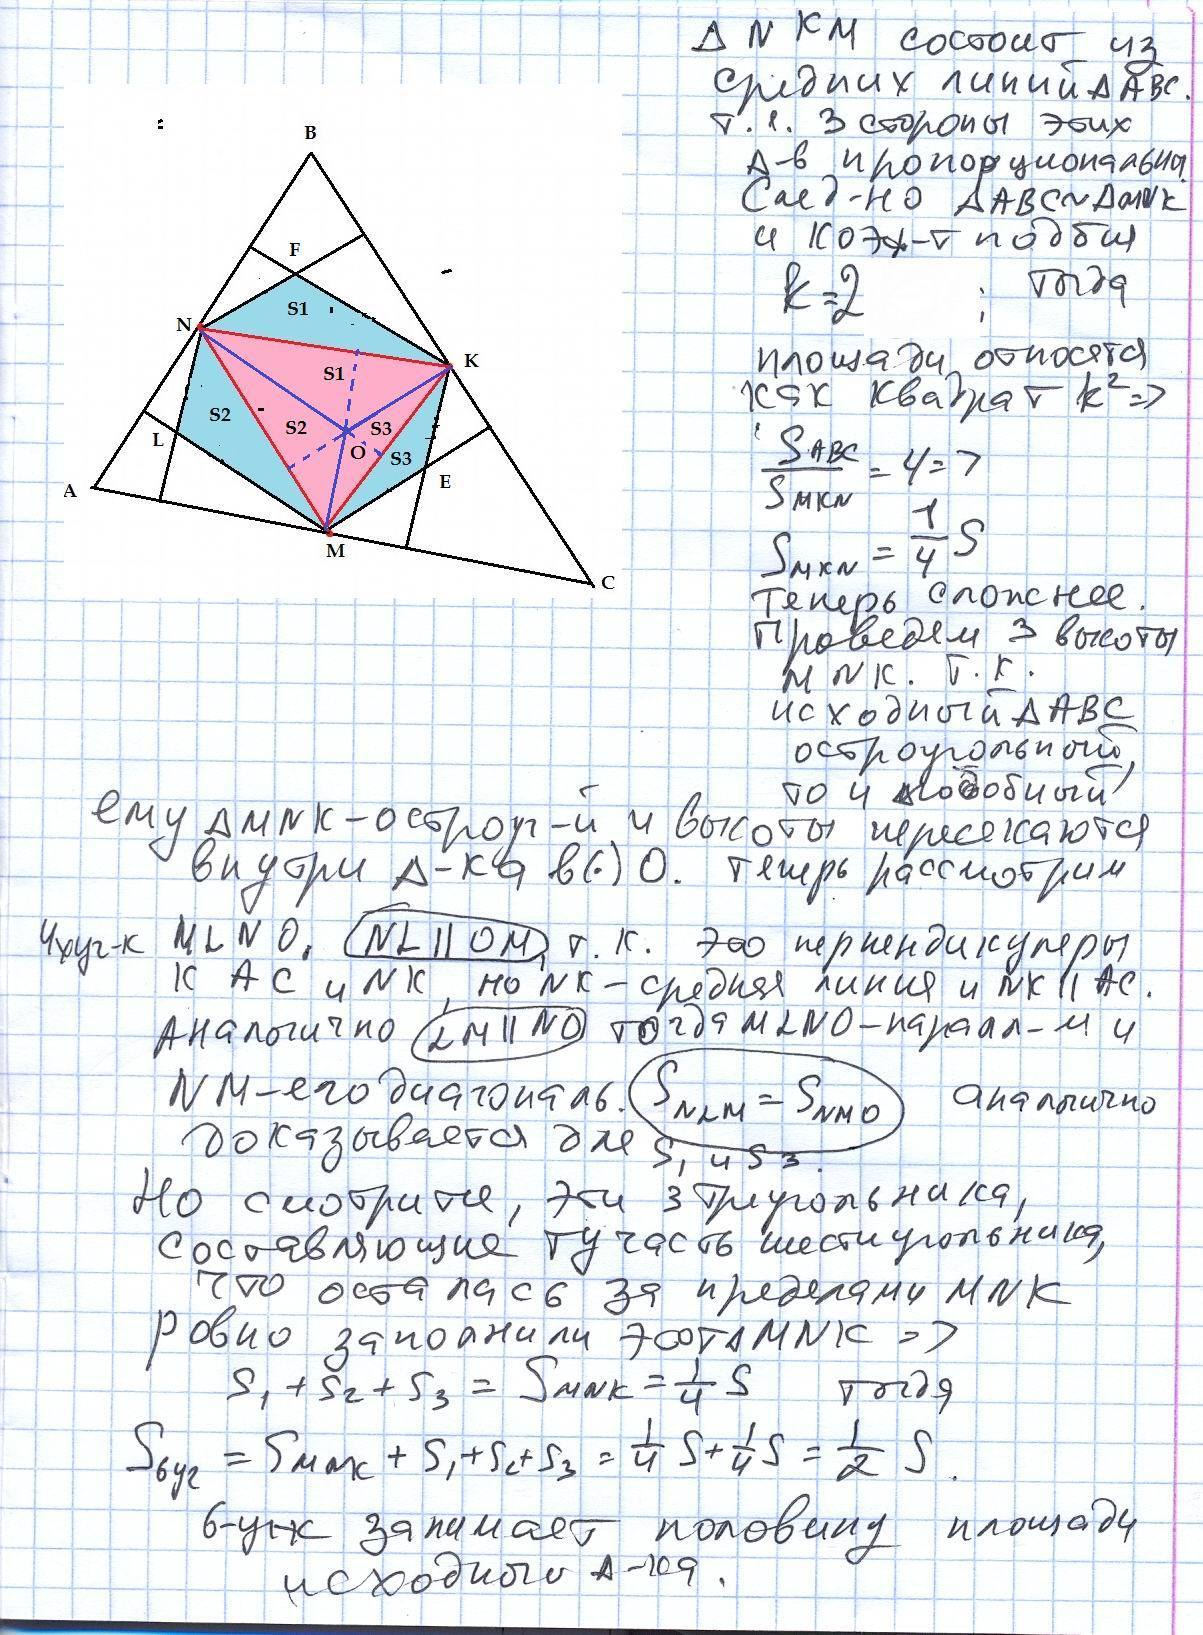 Δ NKM состоит из
средних линий Δ ABC.
т.е. 3 стороны этих
Δ-в пропорциональны.
След-но ΔABC~ΔMNK
и коэф-т подбия
k=2 ; тогда
площади относятся
как квадрат k² =>
S ABC / S MKN = 4 =>
S MKN = 1/4 S
теперь сложнее.
Проведем 3 высоты
MNK. т.к.
исходный ΔABC
остроугольный,
то и подобный
ему ΔMNK-остроуг-й и высоты пересекаются
внутри Δ-ка в (·) O. теперь рассмотрим
4хуг-к MLNO. NL || OM, т.к. это перпендикуляры
к AC и NK, но NK-средняя линия и NK || AC.
Аналогично LM || NO тогда MLNO-паралл-м и
NM-его диагональ. S NLM = S NMO аналогично
доказывается для S1 и S3.
Но смотрите, эти 3 треугольника,
составляющие ту часть шестиугольника,
что осталась за пределами MNK
ровно заполнили этот Δ MNK =>
S1 + S2 + S3 = S MNK = 1/4 S тогда
S 6уг = S MNK + S1 + S2 + S3 = 1/4 S + 1/4 S = 1/2 S.
6-уг-к занимает половину площади
исходного Δ-ка.
B
F
S1
N
K
S1
S2
S2
S3
L
O
S3
E
A
M
C